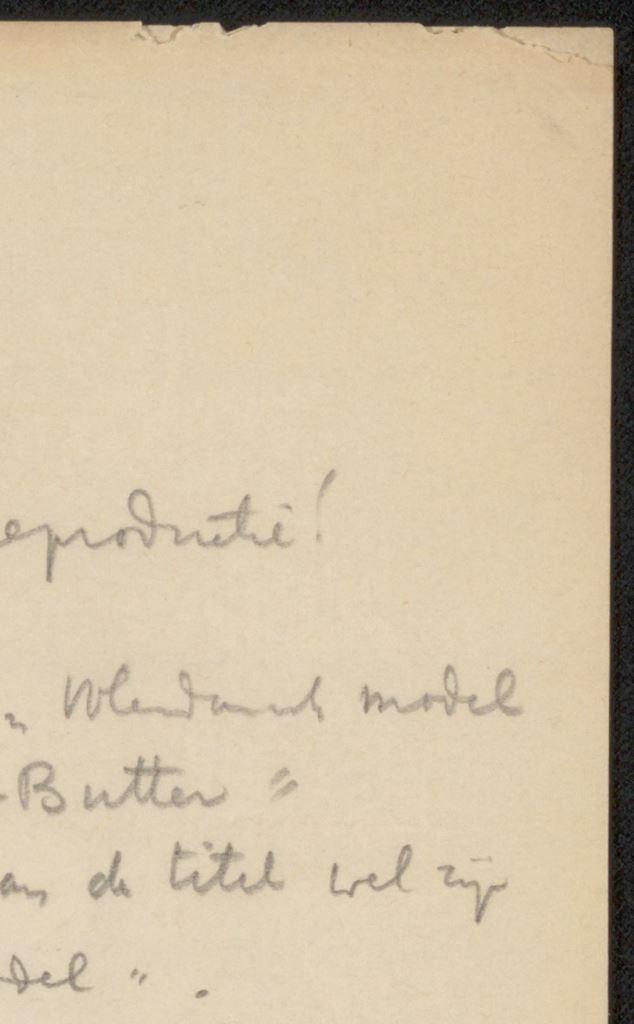 eproductie!
„ Volendamsch model
-Butter "
de titel wel zijn
del " .